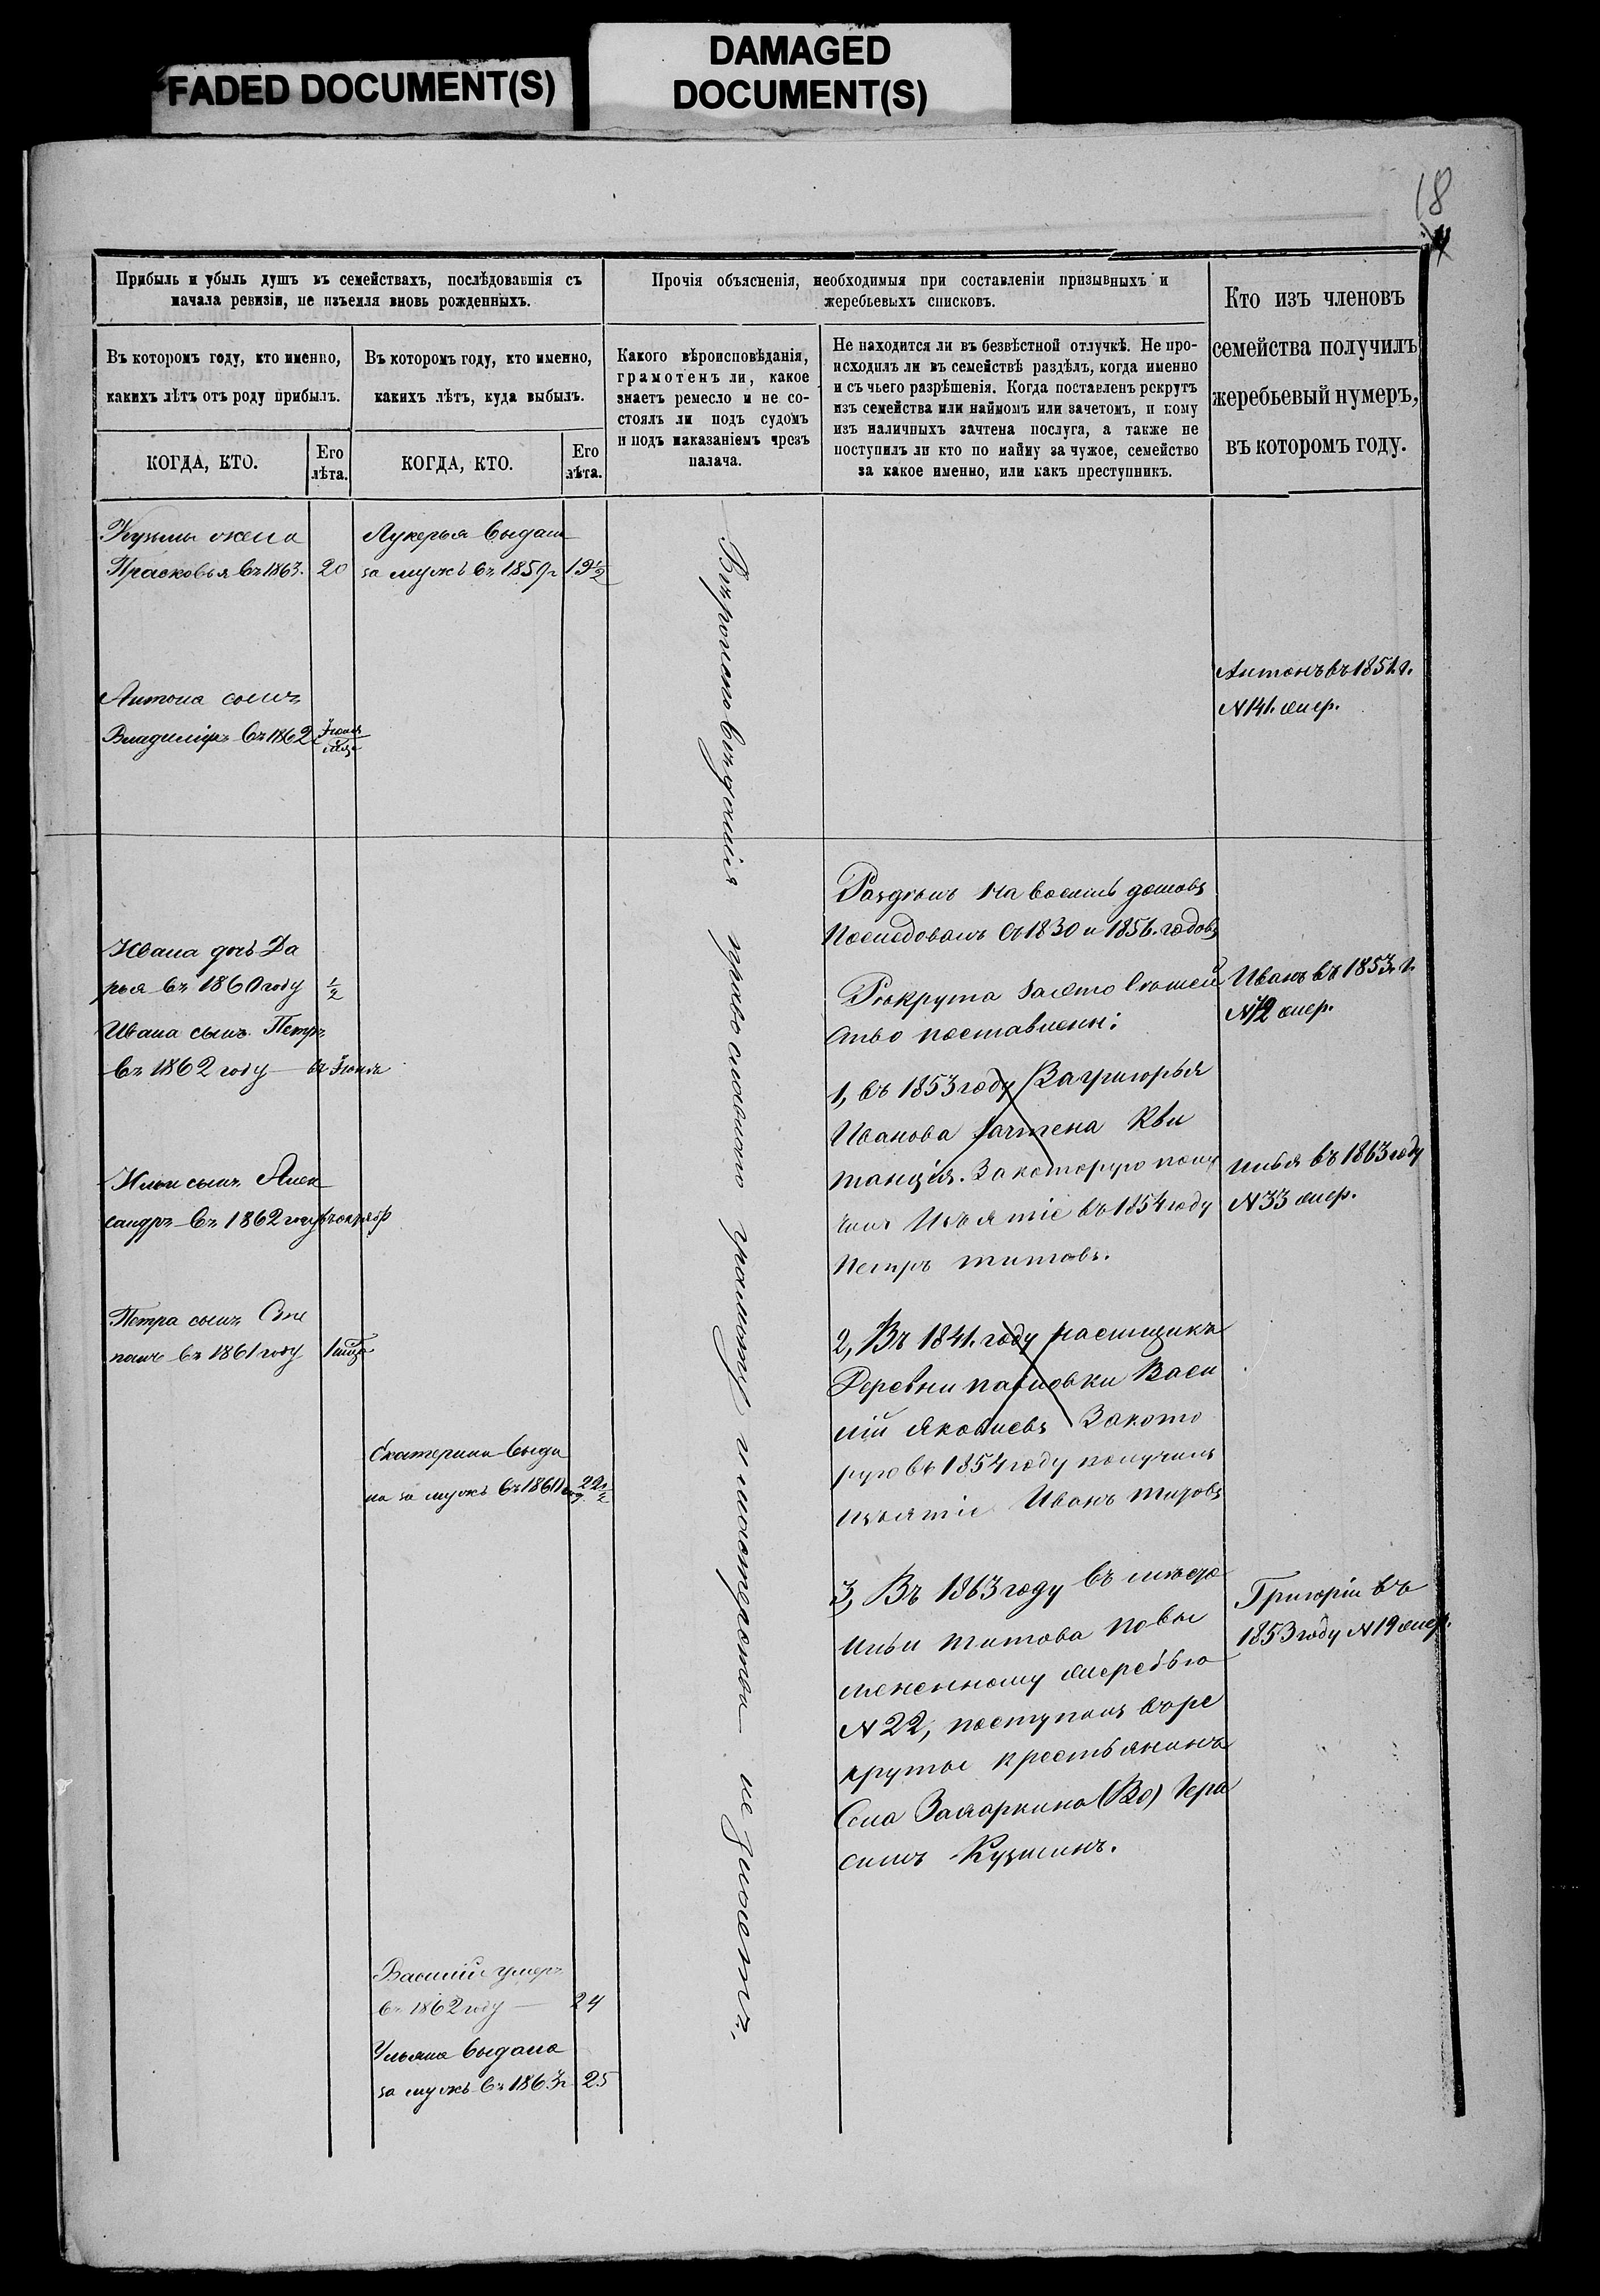 FADED DOCUMENT(S)
DAMAGED
DOCUMENT(S)
18
Прибыль и убыль душъ въ семействахъ, послѣдовавшія съ
начала ревизіи, не изъемля вновь рожденныхъ.
Въ которомъ году, кто именно,
какихъ лѣтъ отъ роду прибылъ.
КОГДА, КТО.
Его
лѣта.
Въ которомъ году, кто именно,
какихъ лѣтъ, куда выбылъ.
КОГДА, КТО.
Его
лѣта.
Прочія объясненія, необходимыя при составленіи призывныхъ и
жеребьевыхъ списковъ.
Какого вѣроисповѣданія,
грамотенъ ли, какое
знаетъ ремесло и не со-
стоялъ ли подъ судомъ
и подъ наказаніемъ чрезъ
палача.
Не находится ли въ безвѣстной отлучкѣ. Не про-
исходилъ ли въ семействѣ раздѣлъ, когда именно
и съ чьего разрѣшенія. Когда поставленъ рекрутъ
изъ семейства или наймомъ или зачетомъ, и кому
изъ наличныхъ зачтена послуга, а также не
поступилъ ли кто по найму за чужое, семейство
за какое именно, или какъ преступникъ.
Кто изъ членовъ
семейства получилъ
жеребьевый нумеръ,
въ которомъ году.
Кузьмы жена
Прасковья въ 1863. 20
Антона сынъ
Владиміръ въ 1862 Іюня
Ивана дочь Да
рья въ 1860 году 1/2
Ивана сынъ Петръ
въ 1862 году въ Іюня
Ильи сынъ Алек
сандръ въ 1862 году
Петра сынъ Сте
панъ въ 1861 году
Лукерья выдана
за мужъ въ 1859 г 19 1/2
Екатерина выда
на за мужъ въ 1860 22 1/2
Василій умеръ
въ 1862 году 24
Ульяна выдана
за мужъ въ 1863 г 25
Вѣроисповѣданія православнаго грамоту и мастерства не знаетъ.
Раздѣлъ на восемь домовъ
послѣдовалъ съ 1830 и 1856. годовъ
Рекрута за это семей
ство поставлены:
1, въ 1853 году За Григорья
Иванова зачтена Кви
танція. За которую полу
чилъ Изъятіе въ 1854 году
Петръ Титовъ.
2, Въ 1841. году наемщикъ
Деревни Васи
лій Яковлевъ За кото
рую въ 1854 году получилъ
изъятіе Иванъ Титовъ
3, Въ 1863 году въ мѣсто
Ильи Титова повы
мененному жеребью
N 22, поступилъ въ ре
круты крестьянинъ
Села Гера
симъ Кузминъ.
Антонъ въ 1851. г.
N 141. жер.
Иванъ въ 1853. г.
N 12 жер.
Илья въ 1863 году
N 33 жер.
Григорій въ
1853 году N 19 жер.